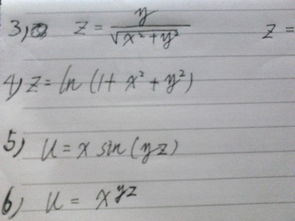 3) z = y/√(x²+y²) z =
4) z = ln (1+ x² + y²)
5) u = x sin (yz)
6) u = x^{yz}